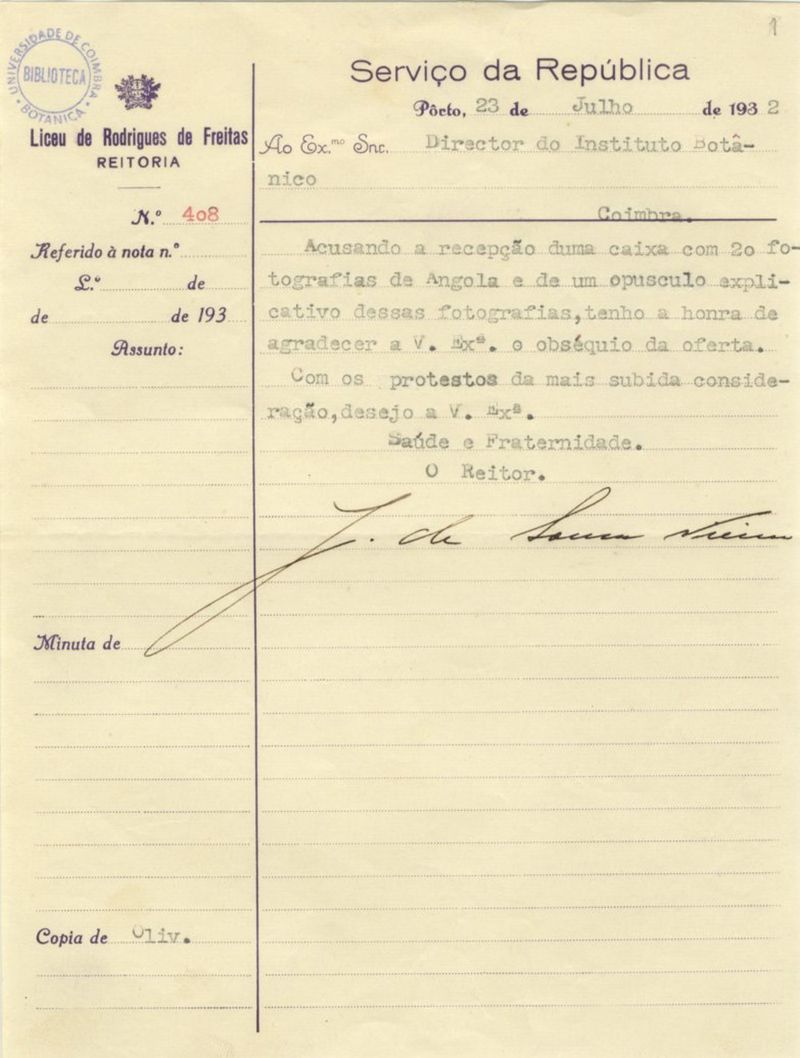 1
UNIVERSIDADE DE COIMBRA
BIBLIOTECA
BOTANICA
Liceu de Rodrigues de Freitas
REITORIA
N.º 408
Referido à nota n.º
L.º de
de de 193
Assunto:
Minuta de
Copia de Oliv.
Serviço da República
Pôrto, 23 de Julho de 1932
Ao Ex.mo Snr. Director do Instituto Botâ-
nico
Coimbra.
Acusando a recepção duma caixa com 20 fo-
tografias de Angola e de um opusculo expli-
cativo dessas fotografias,tenho a honra de
agradecer a V. Exª. o obséquio da oferta.
Com os protestos da mais subida conside-
ração,desejo a V. Exª.
Saúde e Fraternidade.
O Reitor.
J. de Sousa Vieira